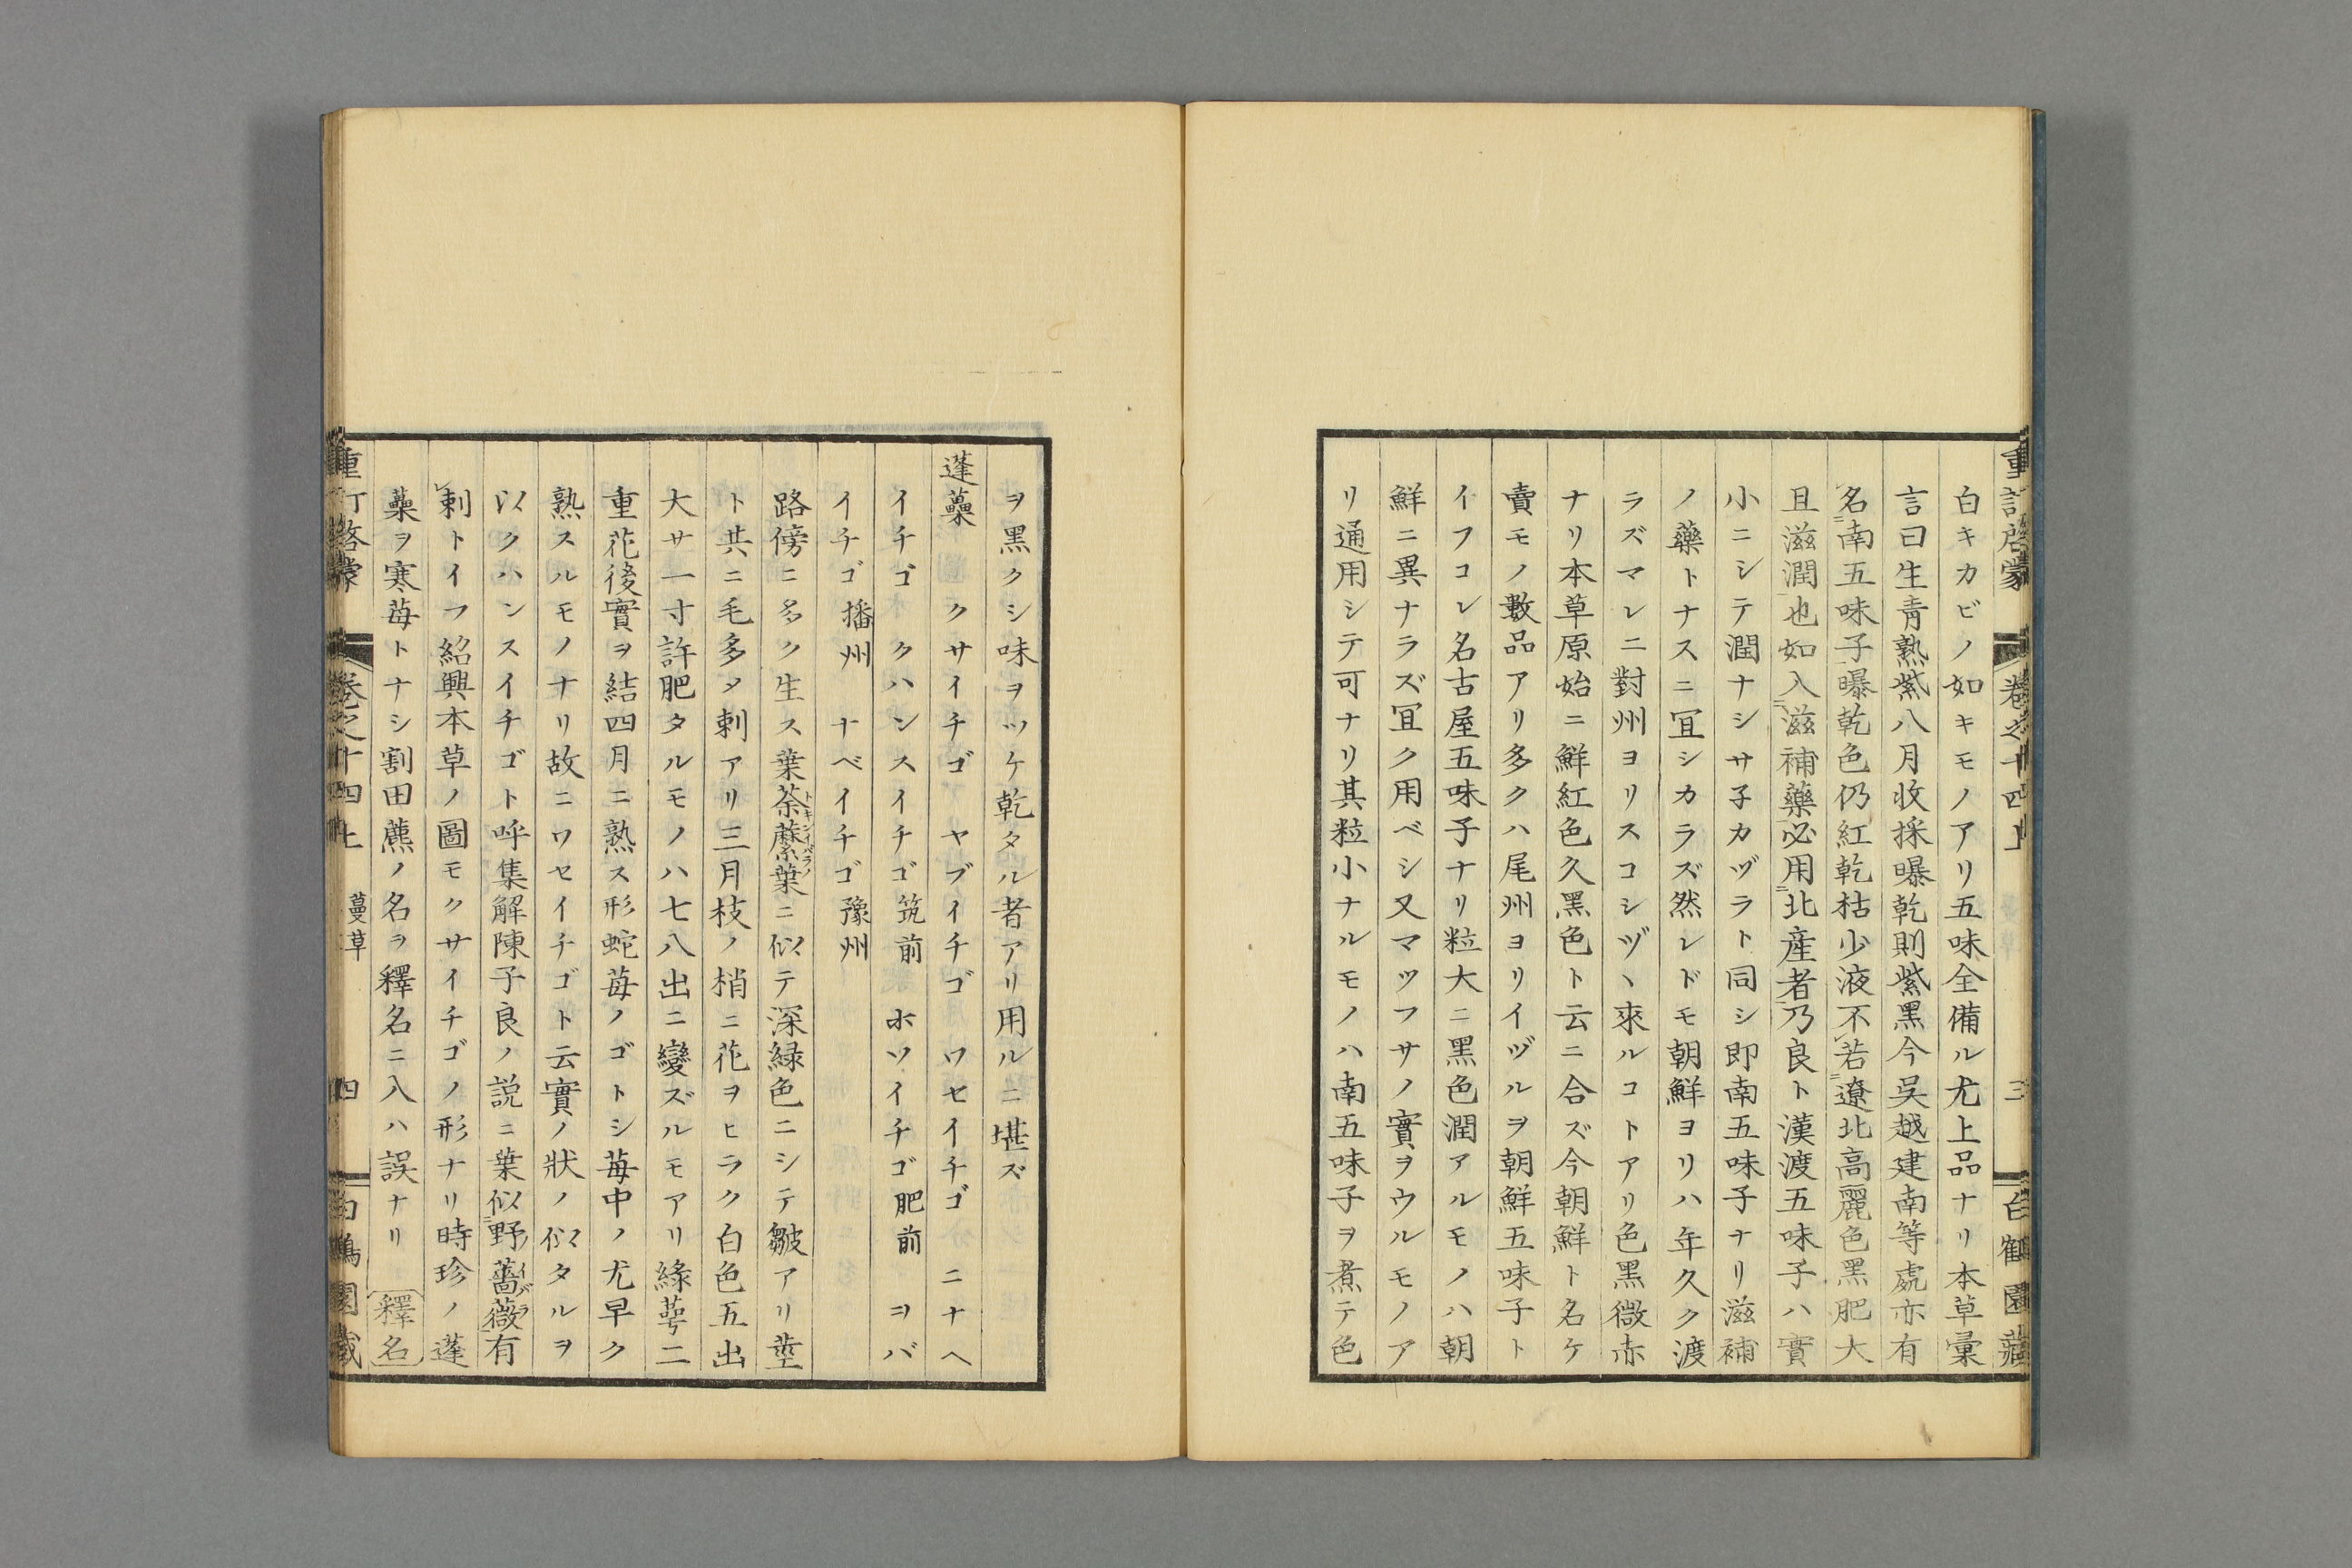 重訂啓蒙 卷之十四上 三 白鶴園藏
白キカビノ如キモノアリ五味全備ル尤上品ナリ本草彙
言曰生靑熟紫八月收採曝乾則紫黑今吳越建南等處亦有
名南五味子曝乾色仍紅乾枯少液不若遼北高麗色黑肥大
且滋潤也如入滋補藥必用北産者乃良ト漢渡五味子ハ實
小ニシテ潤ナシサ子カヅラト同シ即南五味子ナリ滋補
ノ藥トナスニ冝シカラズ然レドモ朝鮮ヨリハ年久ク渡
ラズマレニ對州ヨリスコシヅヽ來ルコトアリ色黑微赤
ナリ本草原始ニ鮮紅色久黑色ト云ニ合ズ今朝鮮ト名ケ
賣モノ數品アリ多クハ尾州ヨリイヅルヲ朝鮮五味子ト
イフコレ名古屋五味子ナリ粒大ニ黑色潤アルモノハ朝
鮮ニ異ナラズ冝ク用ベシ又マツフサノ實ヲウルモノア
リ通用シテ可ナリ其粒小ナルモノハ南五味子ヲ煮テ色
ヲ黑クシ味ヲツケ乾タル者アリ用ルニ堪ズ
蓬蘽 クサイチゴ ヤブイチゴ ワセイチゴ ニナヘ
イチゴ クハンスイチゴ筑前 ホソイチゴ肥前 ヲバ
イチゴ播州 ナベイチゴ豫州
路傍ニ多ク生ス葉荼蘼葉ニ似テ深緑色ニシテ皺アリ莖
トキンイバラノ
ト共ニ毛多タ刺アリ三月枝ノ梢ニ花ヲヒラク白色五出
大サ一寸許肥タルモノハ七八出ニ變ズルモアリ緣萼二
重花後實ヲ結四月ニ熟ス形蛇苺ノゴトシ苺中ノ尤早ク
熟スルモノナリ故ニワセイチゴト云實ノ狀ノ似タルヲ
以クハンスイチゴト呼集解陳子良ノ説ニ葉似野薔薇有
ノイバラ
刺トイフ紹興本草ノ圖モクサイチゴノ形ナリ時珍ノ蓬
蘽ヲ寒苺トナシ割田藨ノ名ヲ釋名ニ入ハ誤ナリ 釋名
重訂啓蒙 卷之十四上 蔓草 四 白鶴園藏